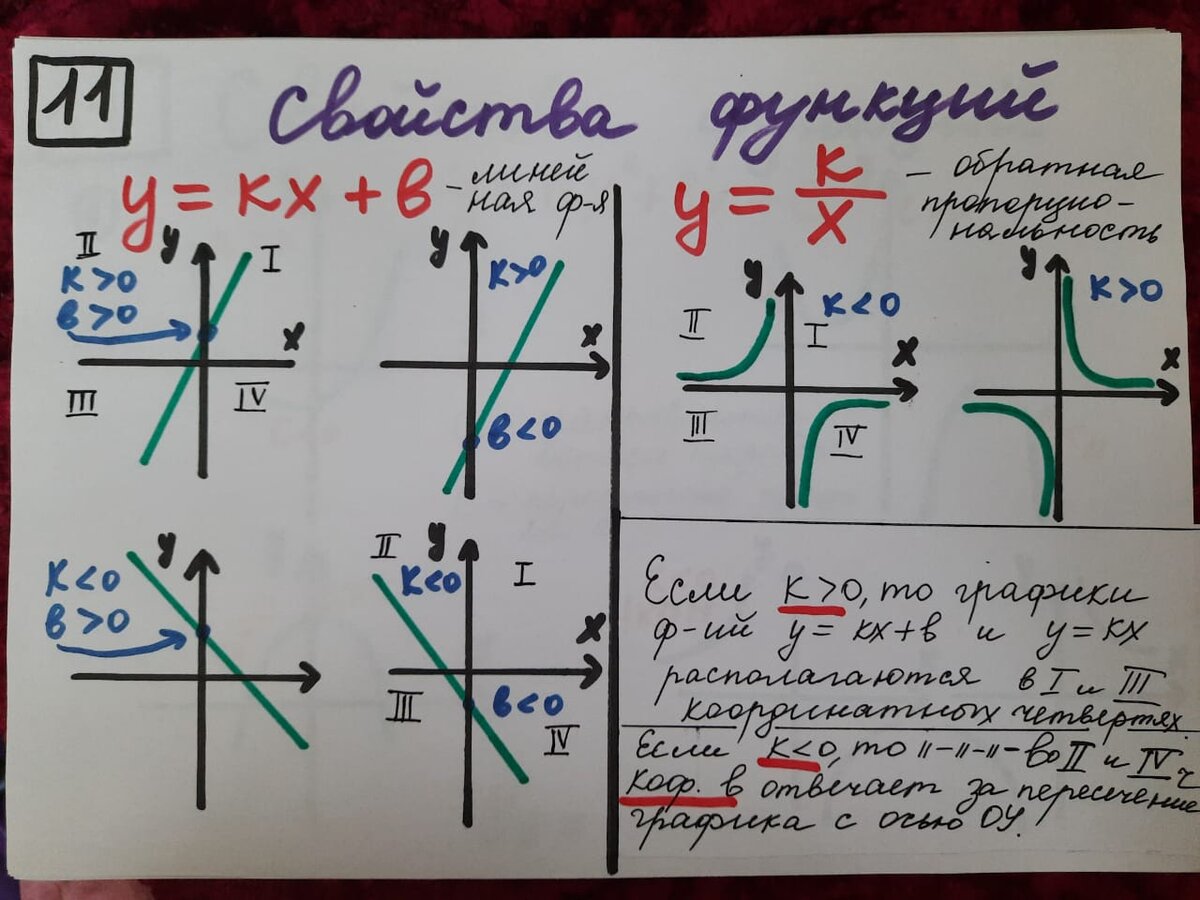 11
Свойства функций
у = кх + в - линей
ная ф-я
II
у
I
к > 0
в > 0
х
III
IV
у
к > 0
х
в < 0
к < 0
в > 0
у
II
у
к < 0
I
х
III
в < 0
IV
у = к/х - обратная
пропорцио-
нальность
у
к < 0
II
I
х
III
IV
у
к > 0
х
Если к > 0, то графики
ф-ий у = кх + в и у = кх
располагаются в I и III
координатных четвертях.
Если к < 0, то "-"-"- во II и IV ч
коф. в отвечает за пересечение
графика с осью ОУ.